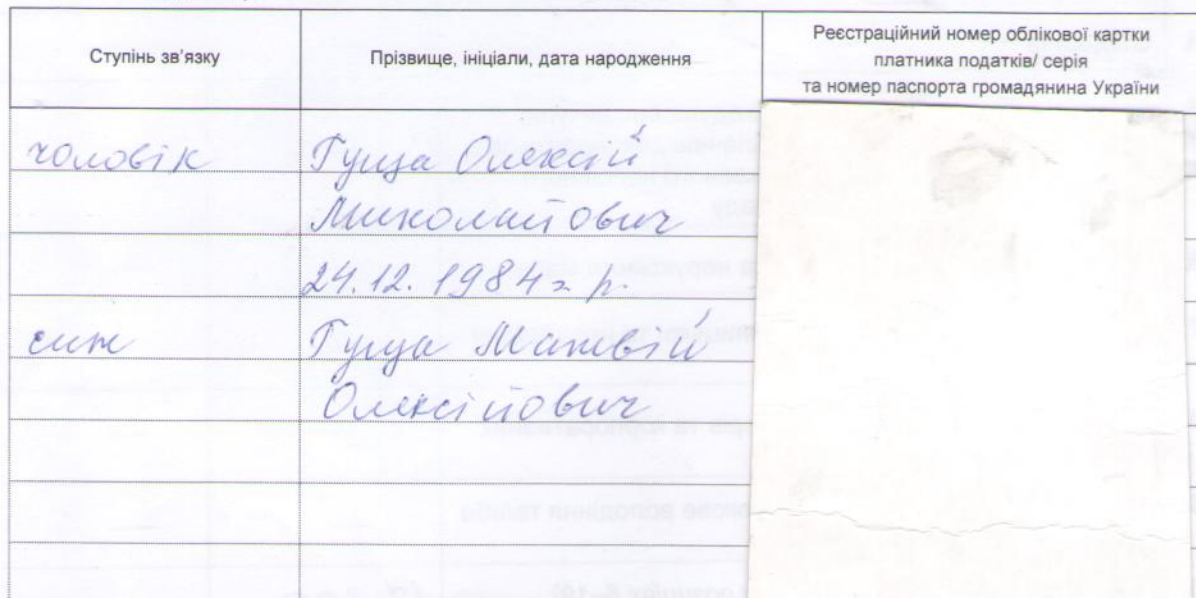 Ступінь зв'язку
Прізвище, ініціали, дата народження
Реєстраційний номер облікової картки
платника податків/ серія
та номер паспорта громадянина України
чоловік
Гуща Олексій
Миколайович
24.12.1984 р.
син
Гуща Матвій
Олексійович